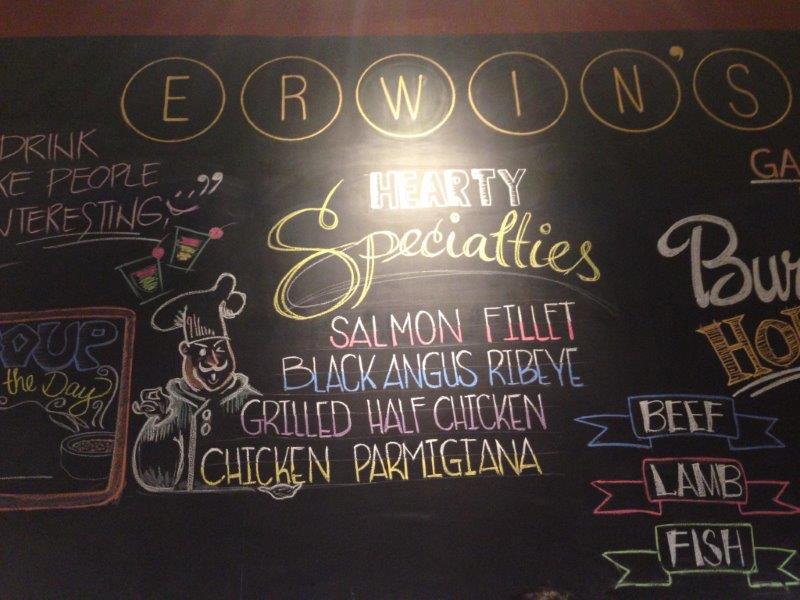 ERWIN'S
DRINK
KE PEOPLE
NTERESTING,"
OUP
the Day
HEARTY
Specialties
SALMON FILLET
BLACK ANGUS RIBEYE
GRILLED HALF CHICKEN
CHICKEN PARMIGIANA
GA
Bur
HO
BEEF
LAMB
FISH